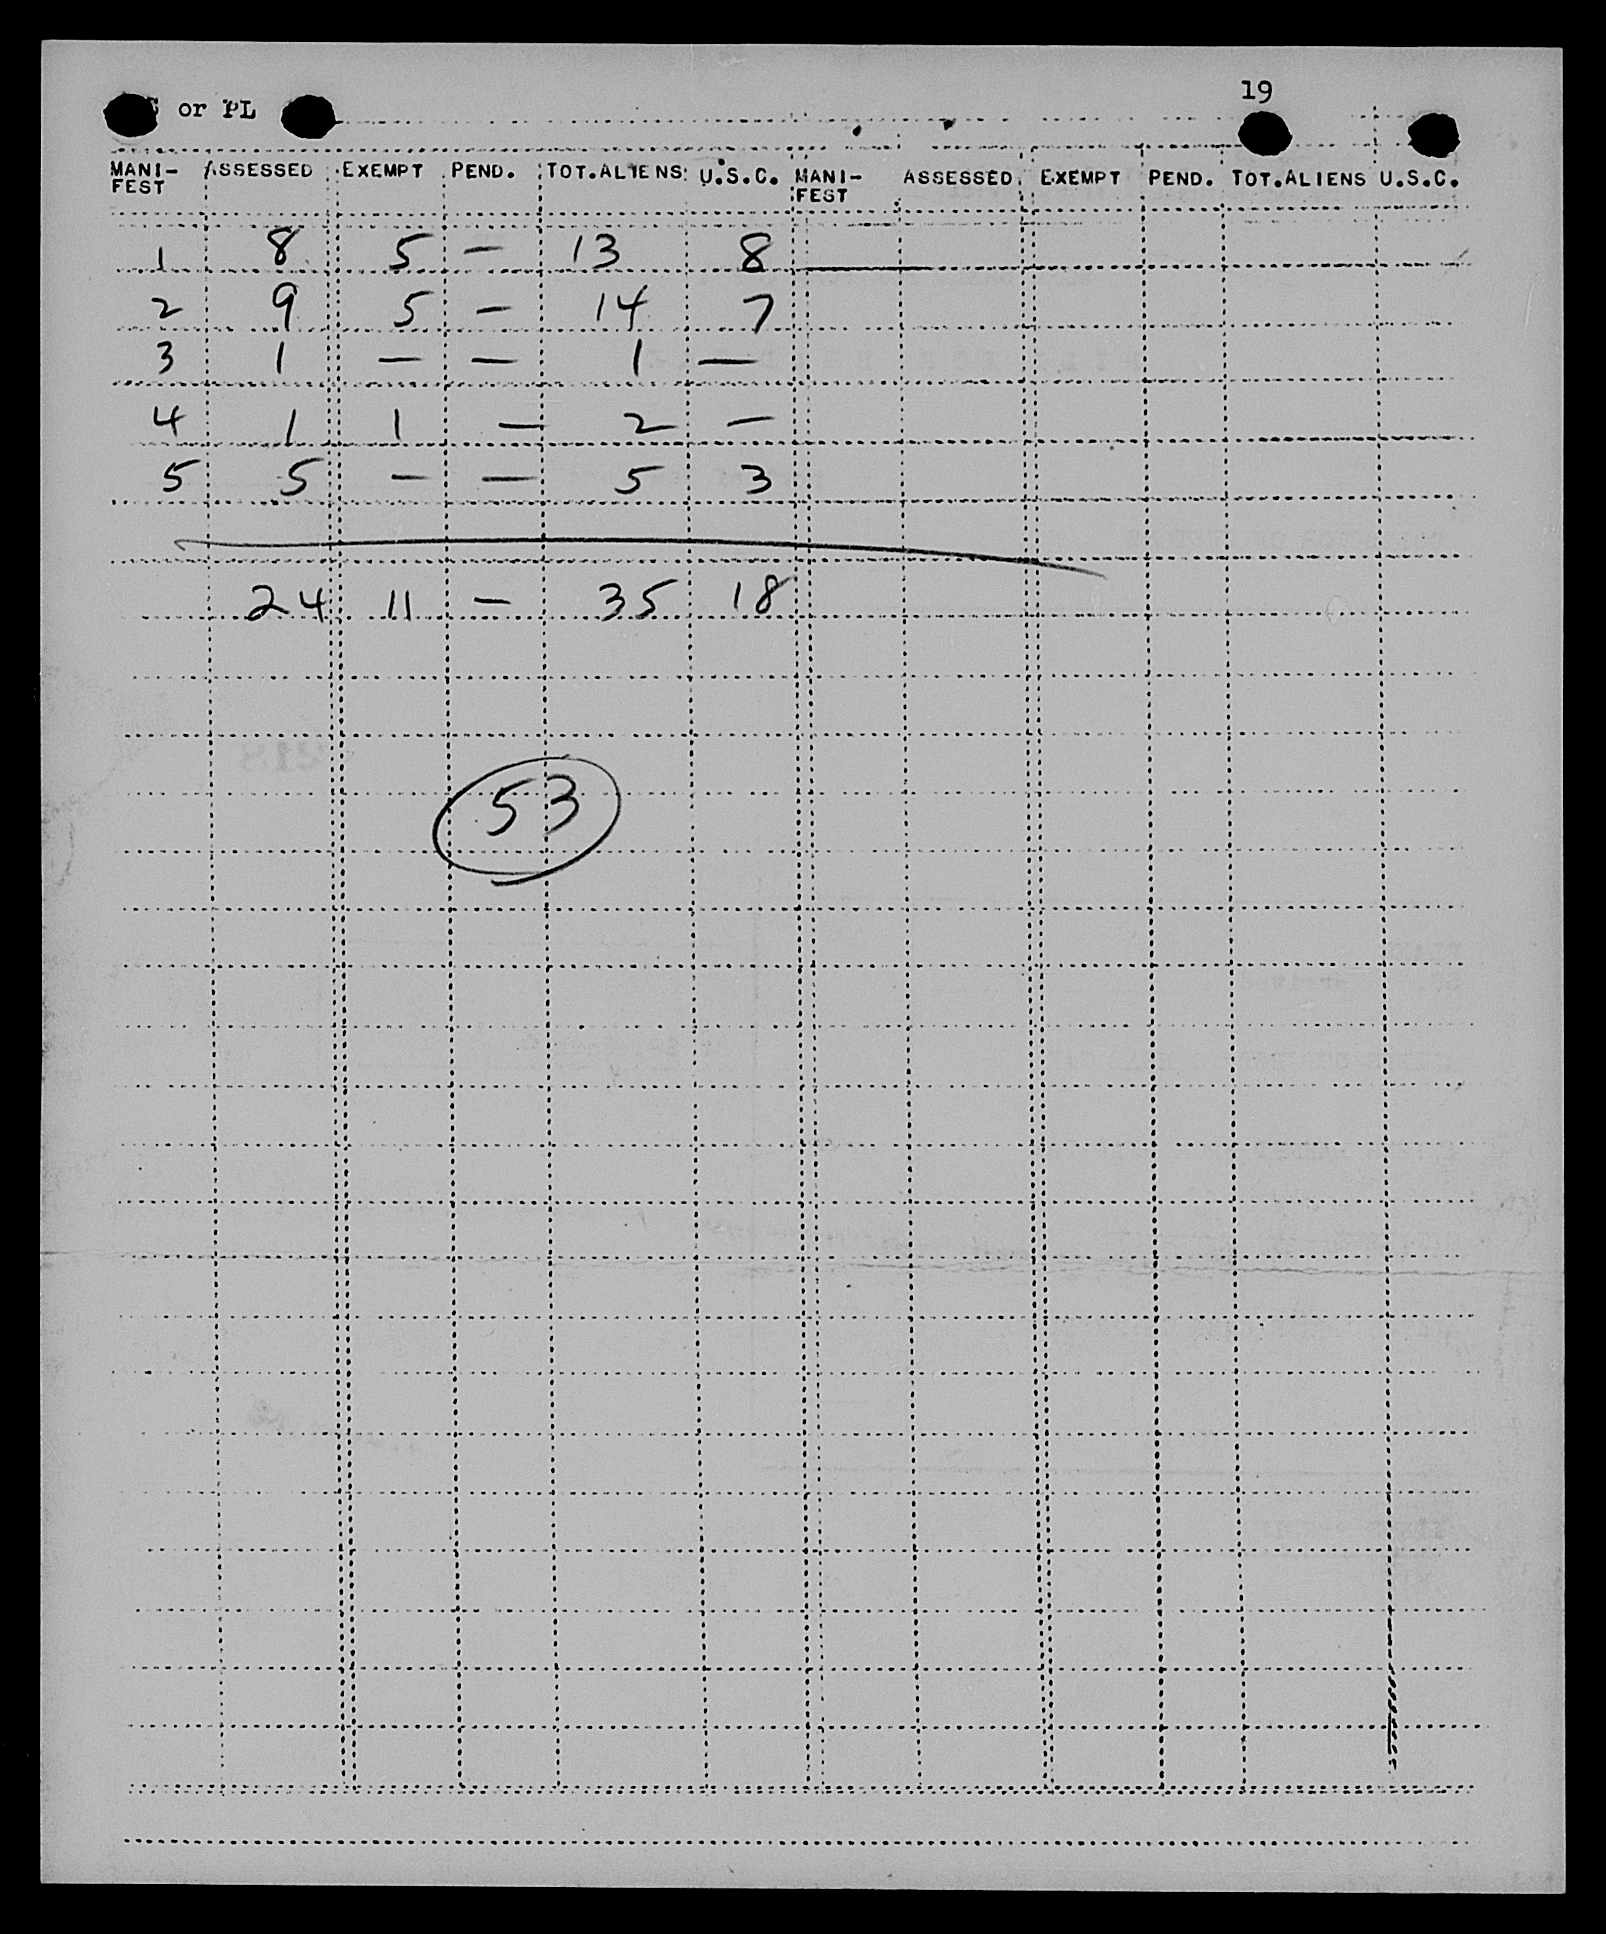 or PL
19
MANI-FEST ASSESSED EXEMPT PEND. TOT.ALIENS U.S.C. MANI-FEST ASSESSED EXEMPT PEND. TOT.ALIENS U.S.C.
1 8 5 — 13 8
2 9 5 — 14 7
3 1 — — 1 —
4 1 1 — 2 —
5 5 — — 5 3
24 11 — 35 18
53